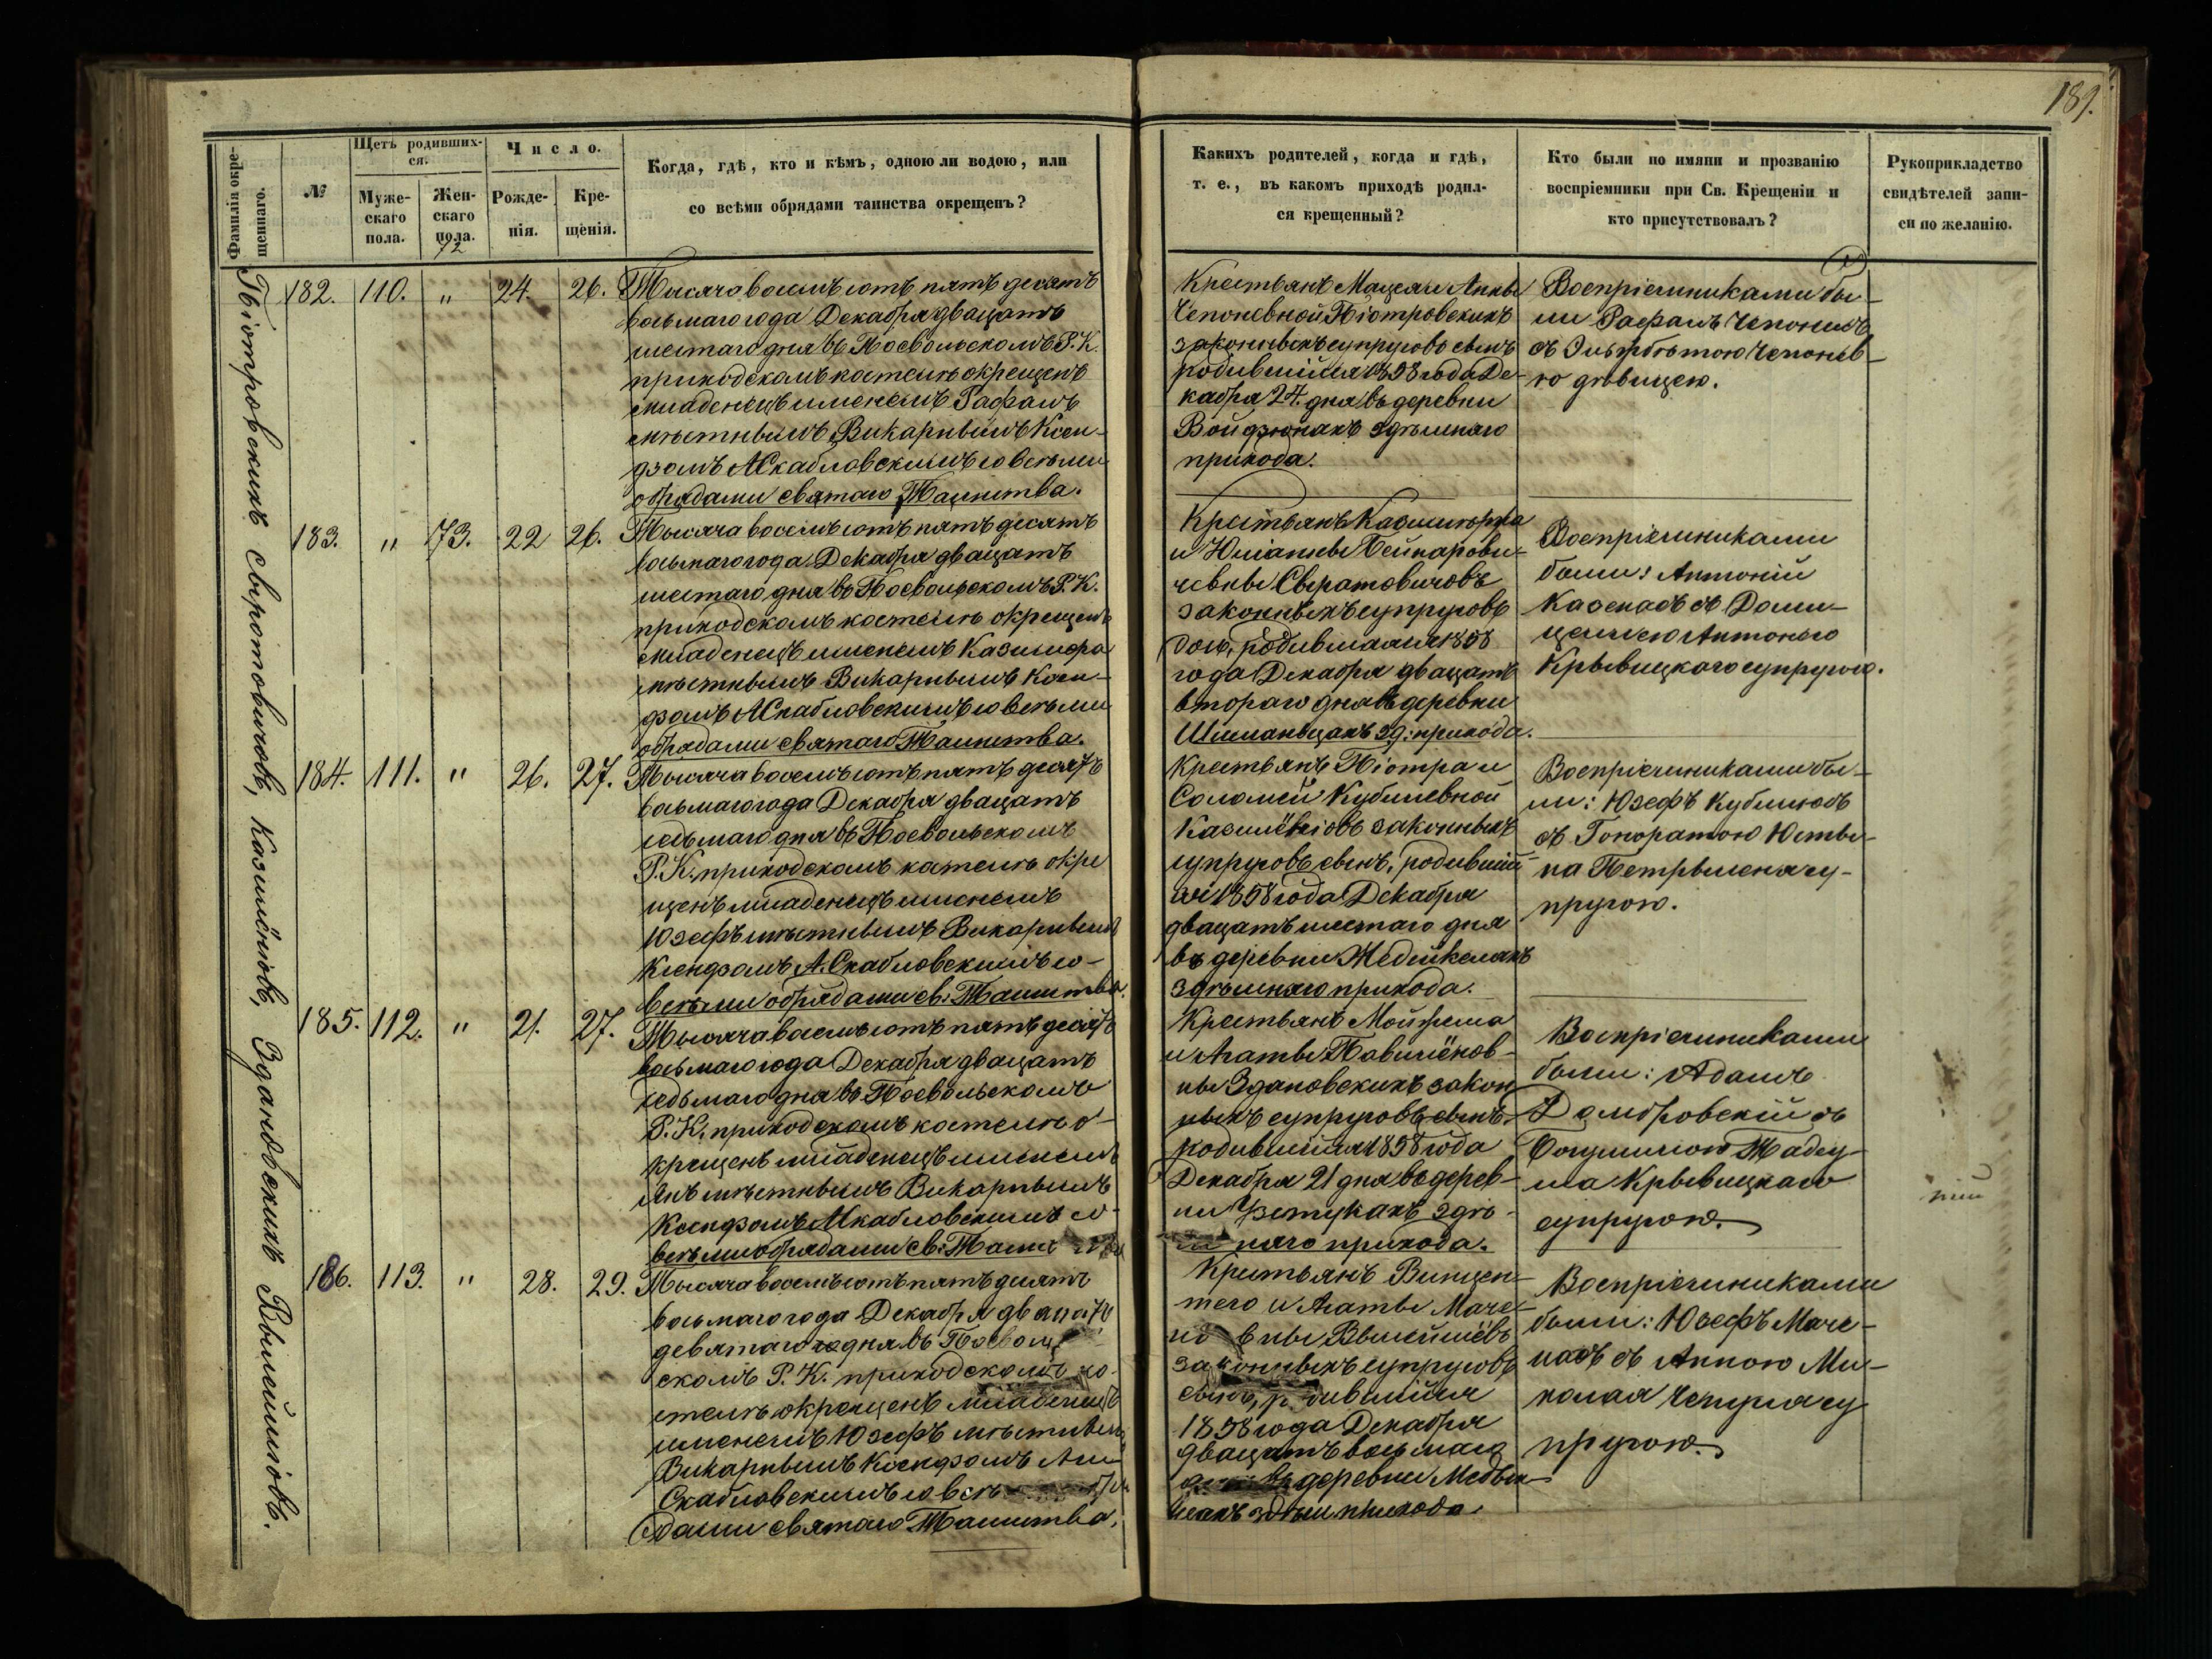 189.
Фамилія окре-
щеннаго.
№
Щетъ родивших-
ся.
Муже-
скаго
пола.
Жен-
скаго
пола.
72
Число.
Рожде-
нія.
Кре-
щенія.
Когда, гдѣ, кто и кѣмъ, одною ли водою, или
со всѣми обрядами таинства окрещенъ?
Какихъ родителей, когда и гдѣ,
т. е., въ какомъ приходѣ родил-
ся крещенный?
Кто были по имяни и прозванію
воспріемники при Св. Крещеніи и
кто присутствовалъ?
Рукоприкладство
свидѣтелей запи-
си по желанію.
Піотровскихъ Свиротовичовъ, Казилёніовъ, Здановскихъ
182. 110. " 24. 26.
Тысяча восемъсотъ пятъдесятъ
восьмаго года Декабря двацатъ
шестаго дня въ Посвольскомъ Р. К.
приходскомъ костелѣ окрещенъ
младенецъ именемъ Рафалъ
мѣстнымъ Викарнымъ Ксен-
дзомъ А Скабловскимъ со всѣми
обрядами святаго Таинства.
Крестьянъ Мацея и Анны
Чепоневной Піотровскихъ
законныхъ супруговъ сынъ
родившійся 1858 года Де-
кабря 24. дня въ деревни
Войдзюнахъ здѣшняго
прихода.
Воспріемниками бы-
ли Рафалъ Чепонисъ
съ Эльжбѣтою Чепонев-
ю дѣвицею.
183. " 73. 22 26.
Тысяча восемъсотъ пятъдесятъ
восьмаго года Декабря двацатъ
шестаго дня въ Посвольскомъ Р. К.
приходскомъ костелѣ окрещенъ
младенецъ именемъ Казимера
мѣстнымъ Викарнымъ Ксен-
дзомъ А Скабловскимъ со всѣми
обрядами святаго Таинства.
Крестьянъ Казимержа
и Юліанны Бейнарови-
чевны Свиратовичовъ
законныхъ супруговъ
дочь, родившаяся 1858
года Декабря двацатъ
втораго дня въ деревни
зд: прихода.
Воспріемниками
были: Антоній
Казенасъ съ Доми-
целлею Антонего
Крывицкаго супругою.
184. 111. " 26. 27.
Тысяча восемъсотъ пятъдесятъ
восьмаго года Декабря двацатъ
седьмаго дня въ Посвольскомъ
Р. К. приходскомъ костелѣ окре
щенъ младенецъ именемъ
Юзефъ мѣстнымъ Викарнымъ
Ксендзомъ А. Скабловскимъ со-
всѣми обрядами св: Таинства.
Крестьянъ Піотра и
Соломеи Кубилевной
Казилёніовъ законныхъ
супруговъ сынъ, родивший-
ся 1858 года Декабря
двацатъ шестаго дня
въ деревни Медейкеляхъ
здѣшняго прихода.
Воспріемниками бы-
ли: Юзефъ Кубилюсъ
съ Гоноратою Юсты-
на Петрылена су-
пругою.
185. 112. " 21. 27.
Тысяча восемъсотъ пятъдесятъ
восьмаго года Декабря двацатъ
седьмаго дня въ Посвольскомъ
Р. К. приходскомъ костелѣ о-
крещенъ младенецъ именемъ
Янъ мѣстнымъ Викарнымъ
Ксендзомъ А Скабловскимъ со-
всѣми обрядами св: Таин
Крестьянъ Мойжеша
и Агаты Павилёнов-
ны Здановскихъ закон
ныхъ супруговъ сынъ
родившійся 1858 года
Декабря 21 дня въ дерев-
ни здѣ-
шняго прихода.
Воспріемниками
были: Адамъ
Домбровскій съ
Богумилою Тадеу-
ша Крывицкаго
супругою.
186. 113. " 28. 29.
Тысяча восемъсотъ пятъдесятъ
восьмаго года Декабря двацать
девятаго дня въ Посволь
скомъ Р. К. приходскомъ ко-
стелѣ окрещенъ младенецъ
именемъ Юзефъ мѣстнымъ
Викарнымъ Ксендзомъ
Скабловскимъ со всѣ
дами святаго Таинства.
Крестьянъ Винцен-
тего и Агаты Маче-
законныхъ супруговъ
сынъ, родившійся
1858 года Декабря
двацатъ восьмаго
въ деревни
здѣш прихода.
Воспріемниками
были: Юзефъ Маче-
насъ съ Анною Ми-
колая су
пругою.